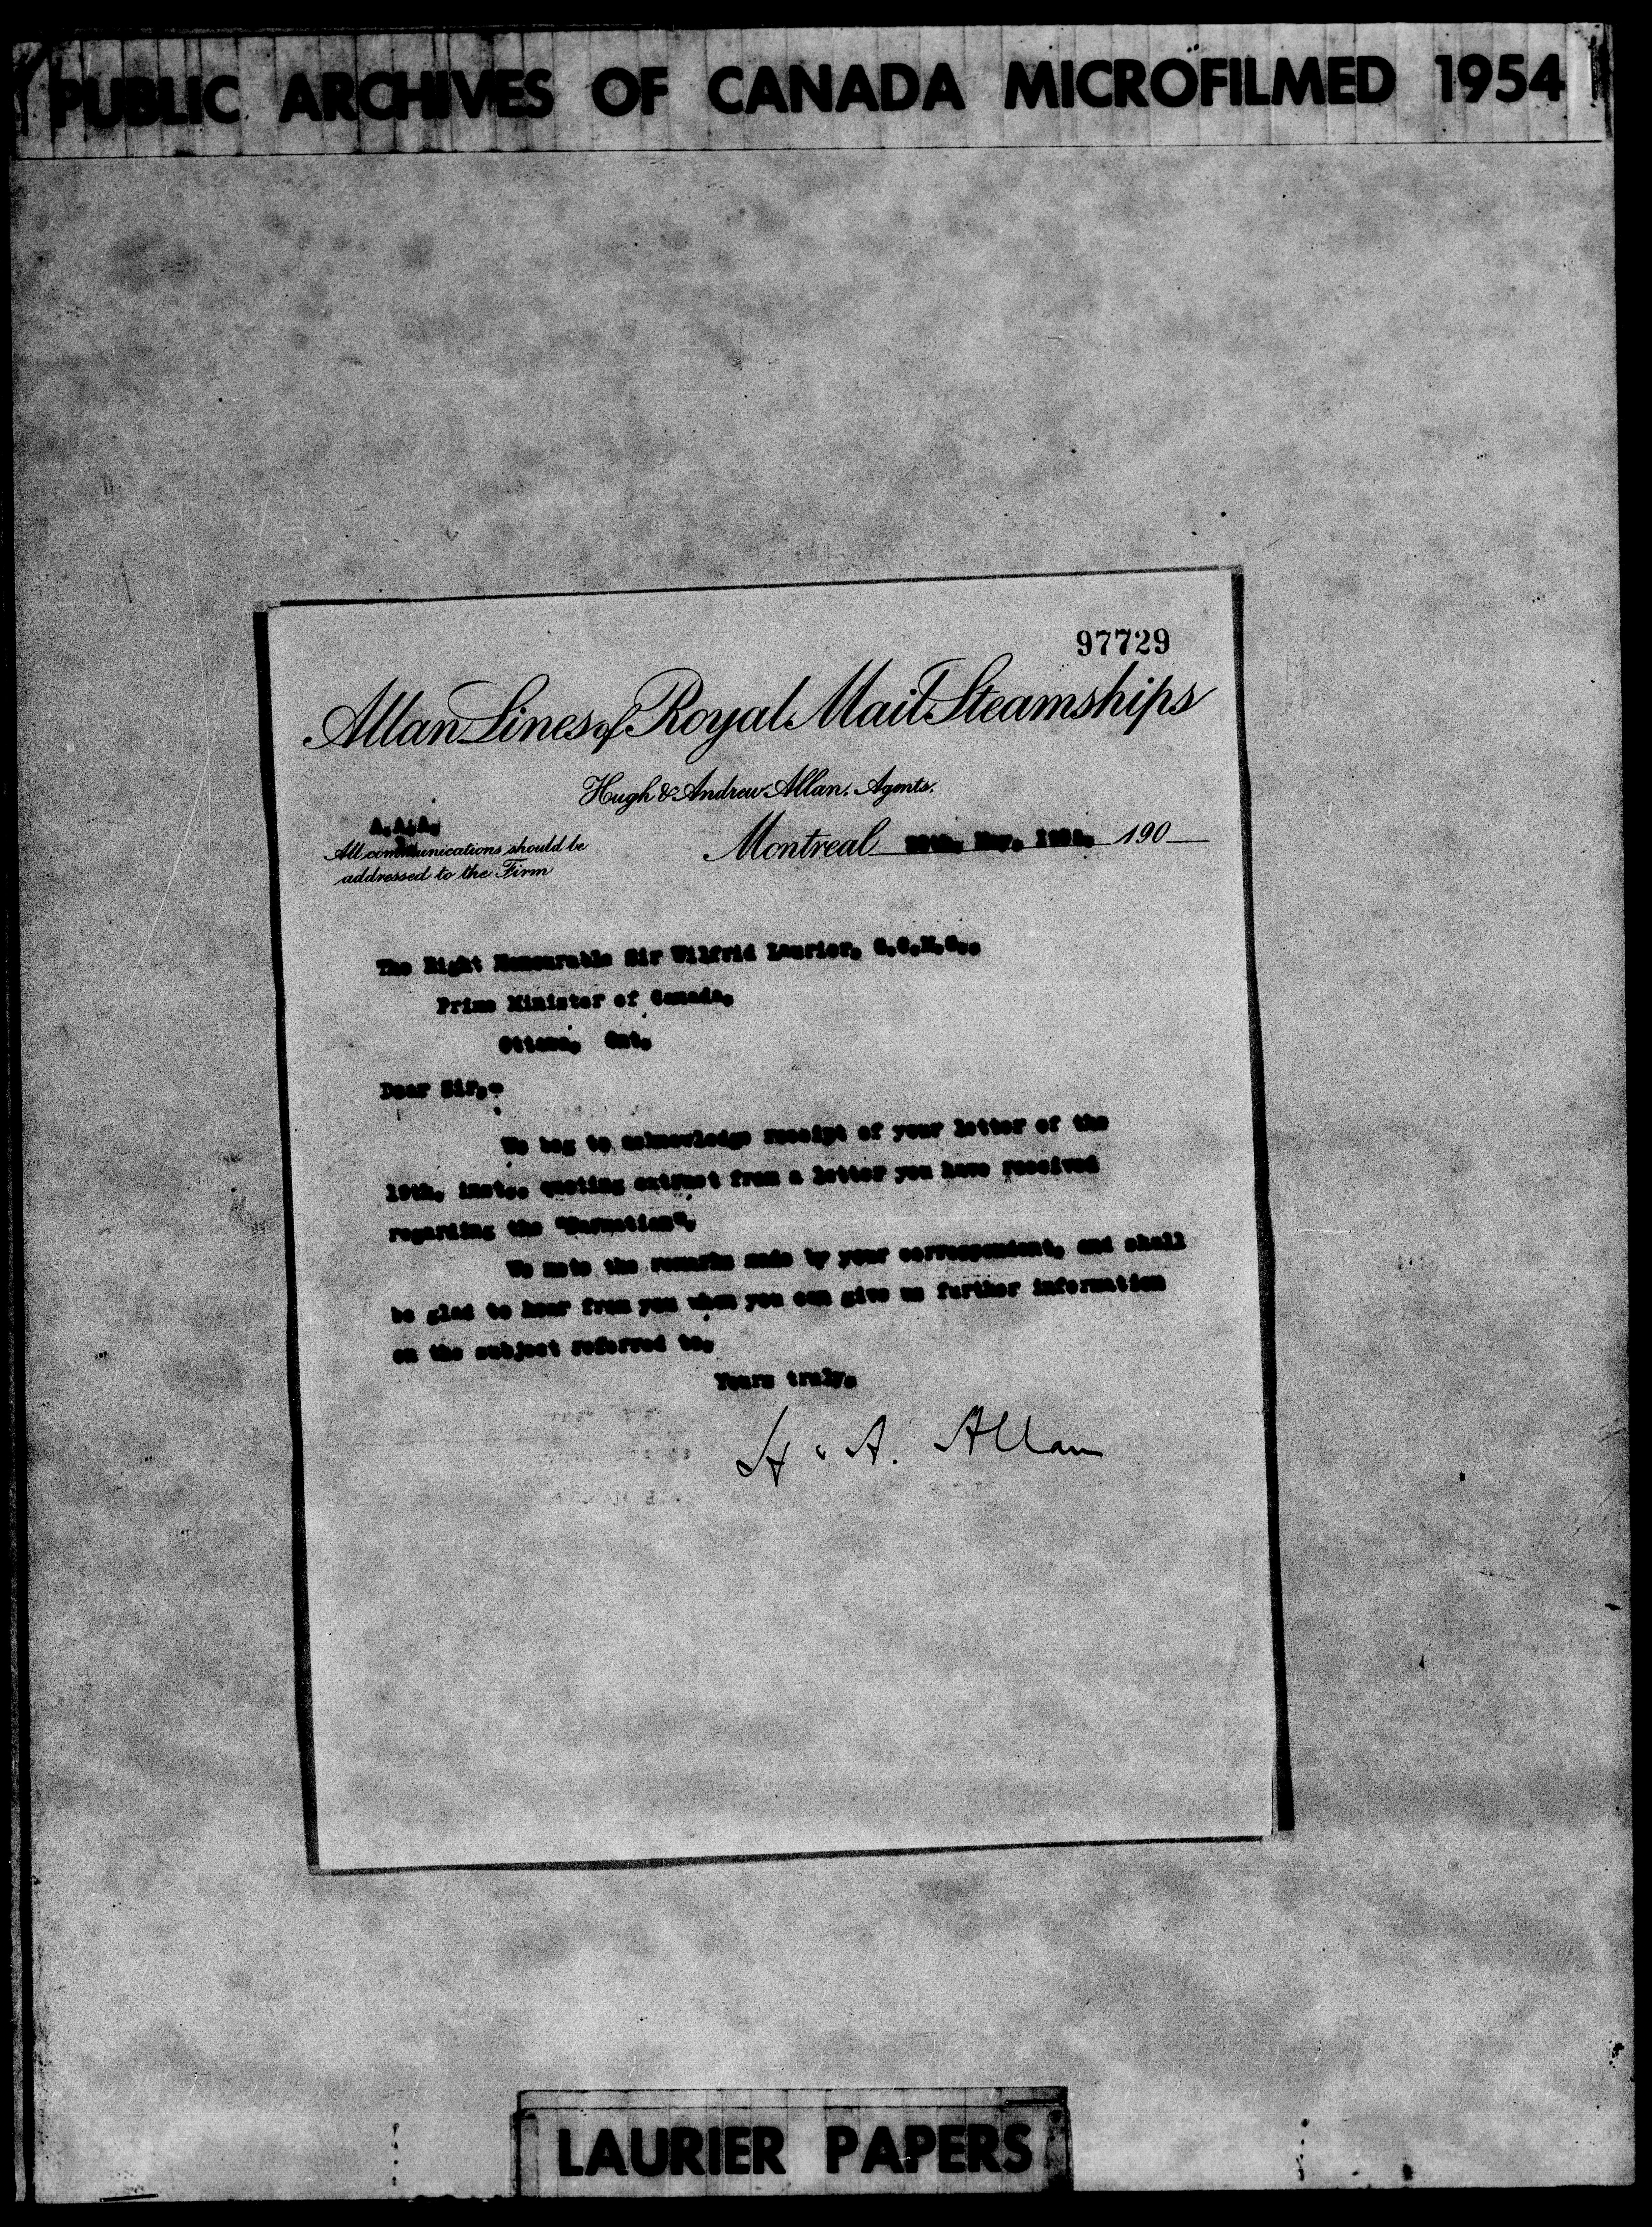 PUBLIC ARCHIVES OF CANADA MICROFILMED 1954
97729
Allan Lines of Royal Mail Steamships
Hugh & Andrew Allan. Agents.
A.A.A.
All communications should be
addressed to the Firm
Montreal May, 190
The Right Honourable Sir Wilfrid Laurier, G.C.M.G.,
Prime Minister of Canada,
Ottawa, Ont.
Dear Sir,-
We beg to acknowledge receipt of your letter of the
19th, inst., quoting extract from a letter you have received
regarding the
We note the remarks made by your correspondent, and shall
be glad to hear from you when you can give us further information
on the subject referred to,
Yours truly,
H & A. Allan
LAURIER PAPERS